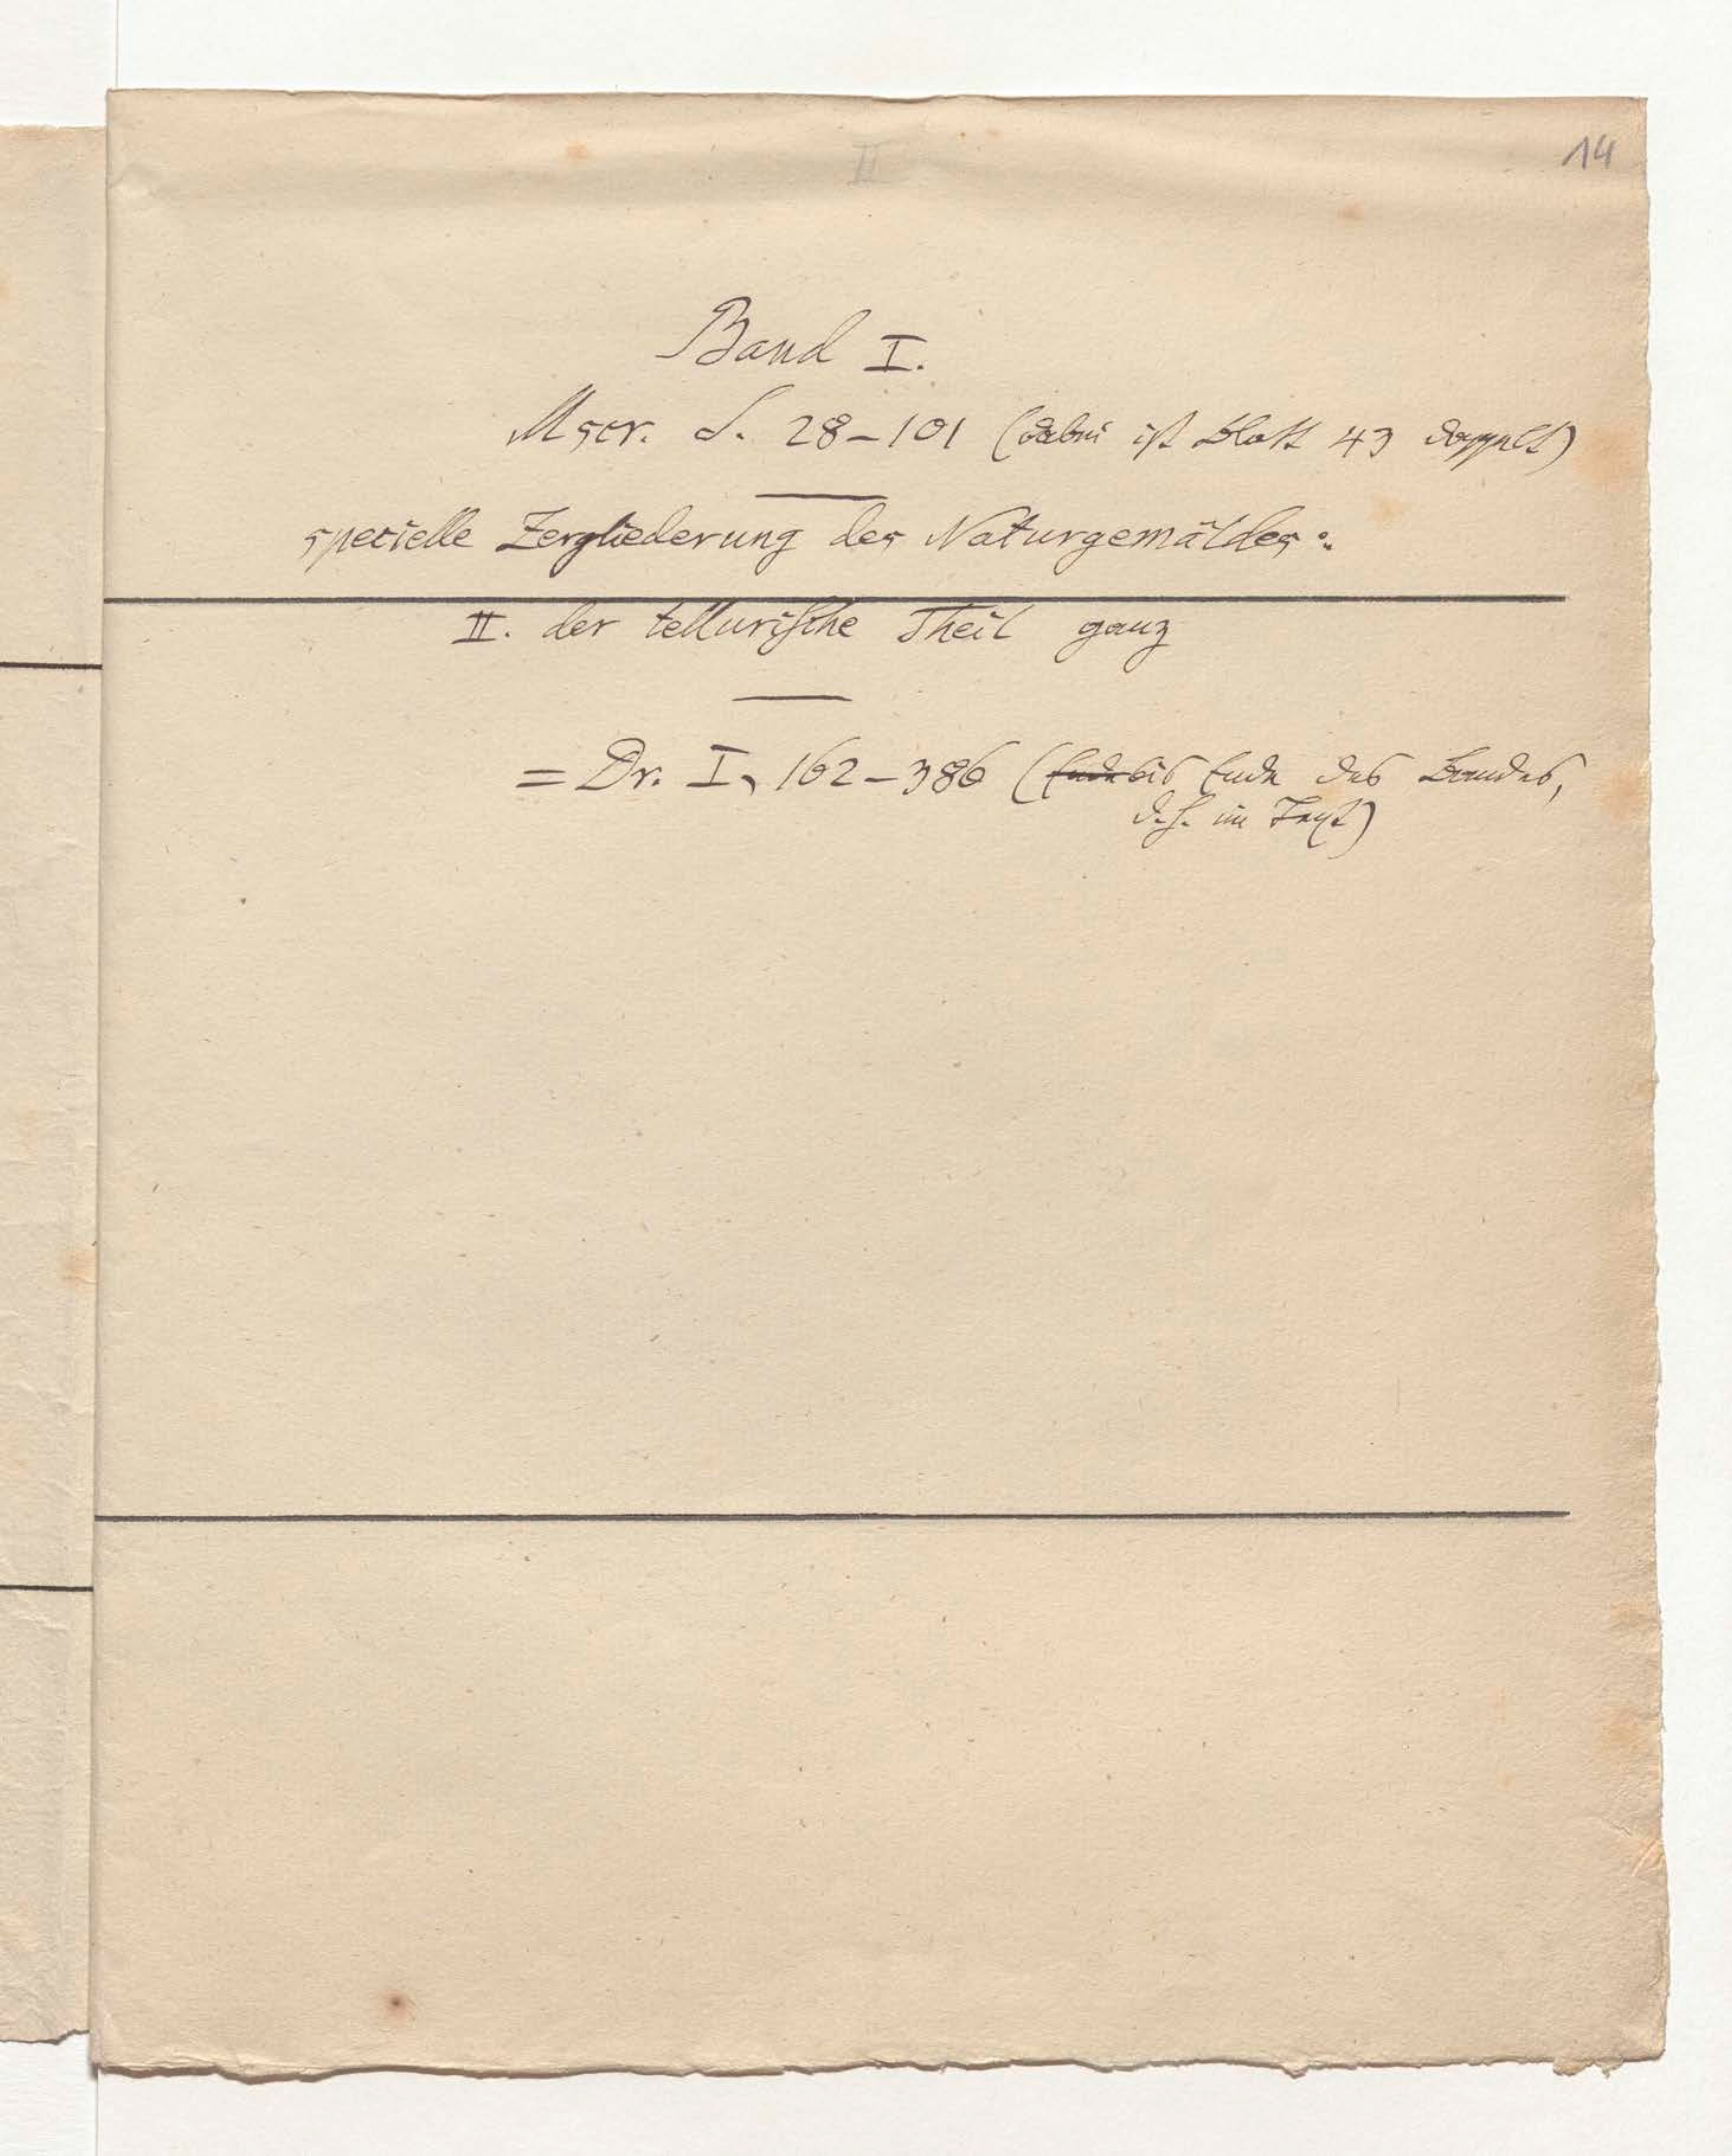 II
14
Band I.
Mscr. S. 28–101 (dabei ist Blatt 43 doppelt)
specielle Zergliederung des Naturgemäldes:
II. der tellurische Theil ganz
= Dr. I, 162–386 (Ende bis Ende des Bandes,
d. h. im Text)